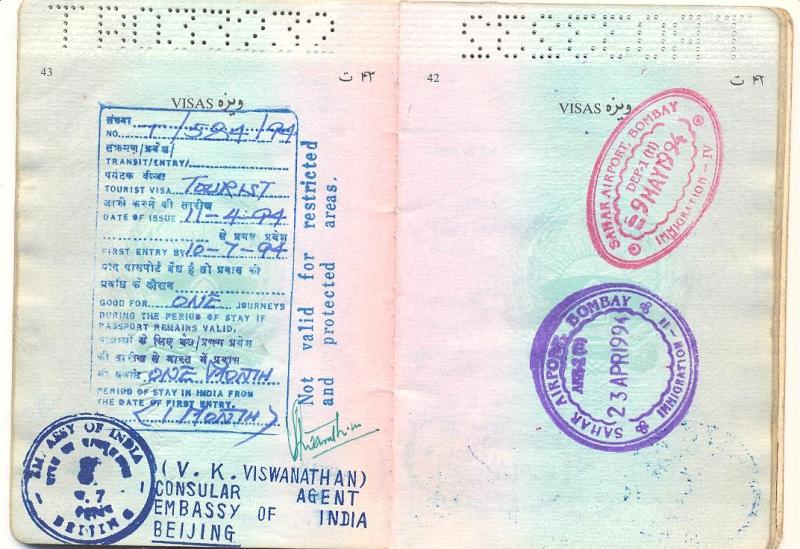 TR033232
43
۴۳ ت
VISAS ویزه
संख्या
NO. 1/584/94
संक्रमण/प्रवेश/
TRANSIT/ENTRY/
पर्यटक वीज़ा
TOURIST VISA TOURIST
जारी करने की तारीख
DATE OF ISSUE 11-4-94
से प्रथम प्रवेश
FIRST ENTRY BY 10-7-94
यदि पासपोर्ट वैध है तो प्रवास की
अवधि के दौरान
GOOD FOR ONE JOURNEYS
DURING THE PERIOD OF STAY IF
PASSPORT REMAINS VALID,
के लिए वैध/प्रथम प्रवेश
की तारीख से भारत में प्रवास
की अवधि ONE MONTH
PERIOD OF STAY IN INDIA FROM
THE DATE OF FIRST ENTRY.
(1 MONTH)
Not valid for restricted
and protected areas.
EMBASSY OF INDIA
BEIJING
(V. K. VISWANATHAN)
CONSULAR AGENT
EMBASSY OF INDIA
BEIJING
42
۴۲ ت
VISAS ویزه
SAHAR AIRPORT, BOMBAY
DEP-1 (H)
9 MAY 1994
IMMIGRATION - IV
SAHAR AIRPORT, BOMBAY
23 APR 1994
IMMIGRATION - II